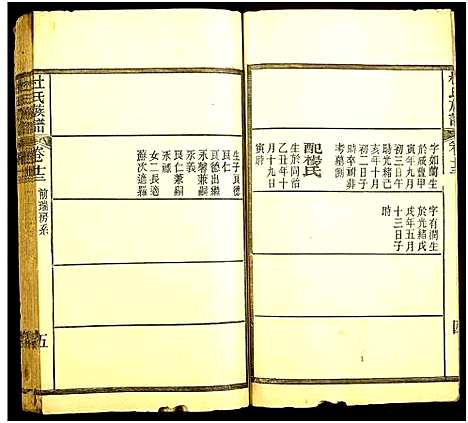 杜氏族譜
卷廿三
四
字如蘭生
於咸豐甲
寅年九月
初三日午
時光緒己
初二日子
時卒祠葬
考墓側
配楊氏
生於同治
乙丑年十
月十九日
寅時
字有潤生
於光緒戊
戌年五月
十三日子
時
生子貞德
良仁
貞德出繼
永馨兼嗣
永義
良仁兼嗣
永祿
女二長適
蕭次適羅
杜氏族譜
卷廿三
前瑞房系
五